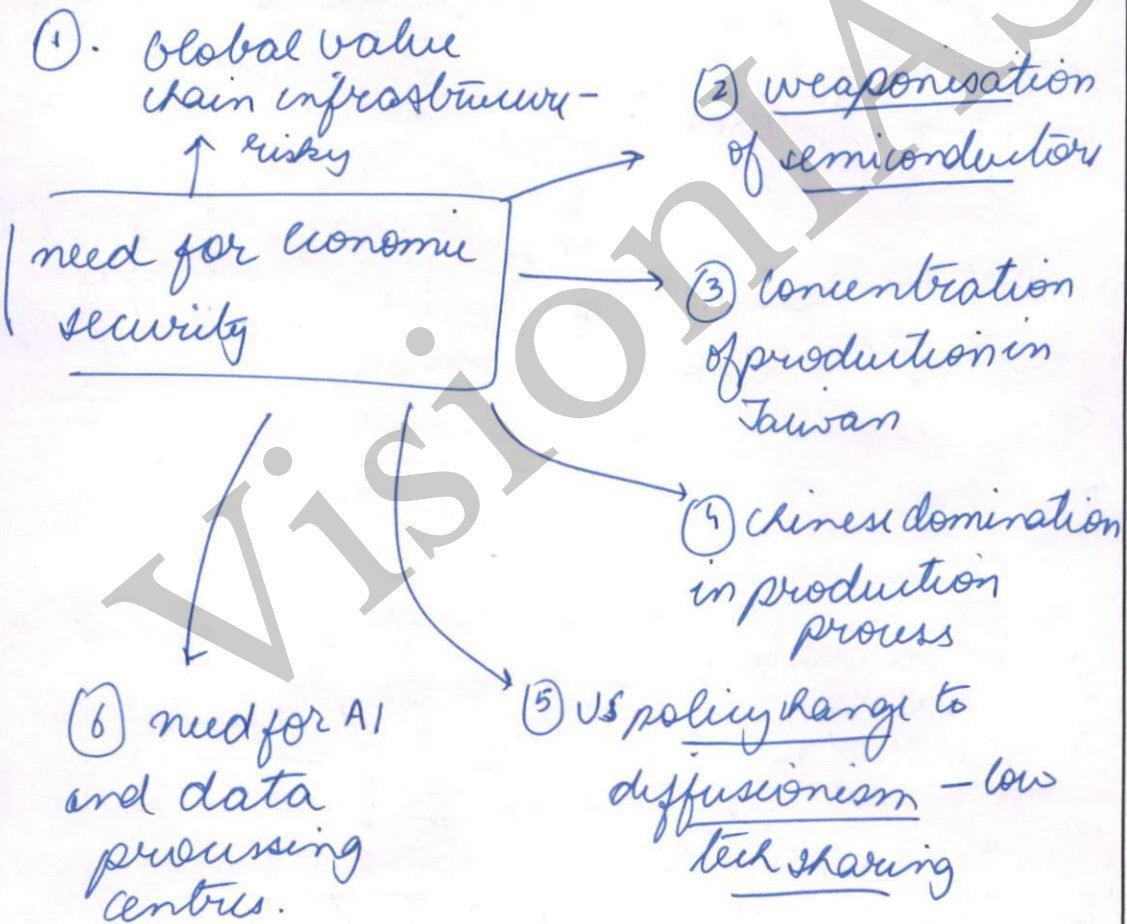 ①. Global value
chain infrastructure -
risky
② weaponisation
of semiconductors
need for economic
security
③ Concentration
of production in
Taiwan
④ Chinese domination
in production
process
⑤ US policy change to
diffusionism - low
tech sharing
⑥ need for AI
and data
processing
centres.
VisionIAS